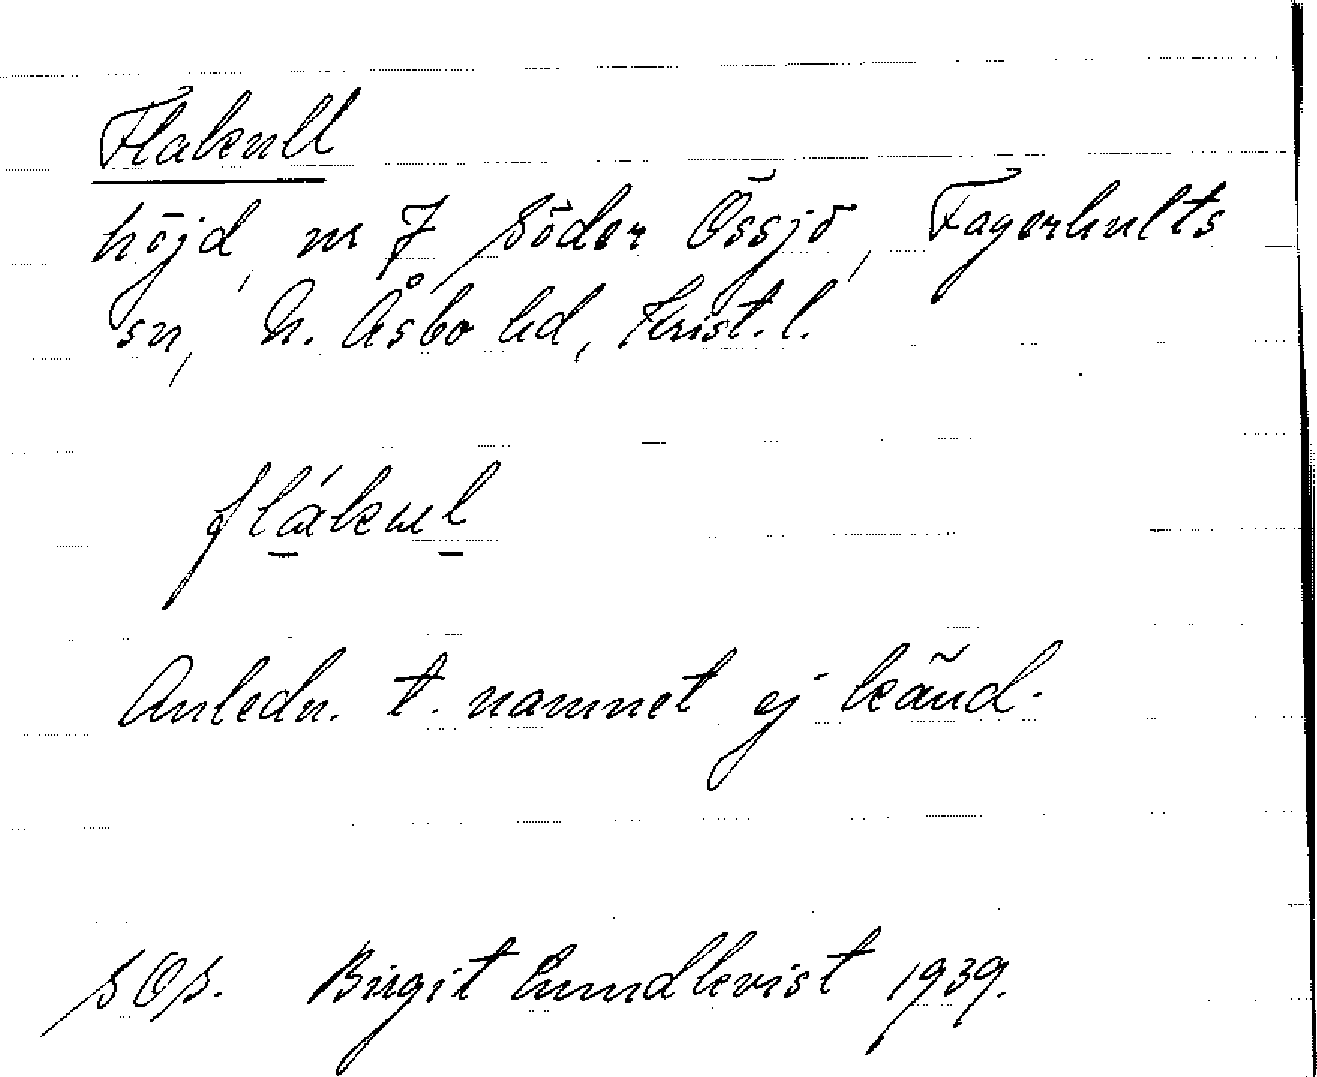 Flakull
höjd, nr 7 Söder Össjö, Fagerhults
sn, N. Åsbo hd, Krist. l.
flákul
Anledn. t. namnet ej känd.
SOS. Birgit Lundkvist 1939.